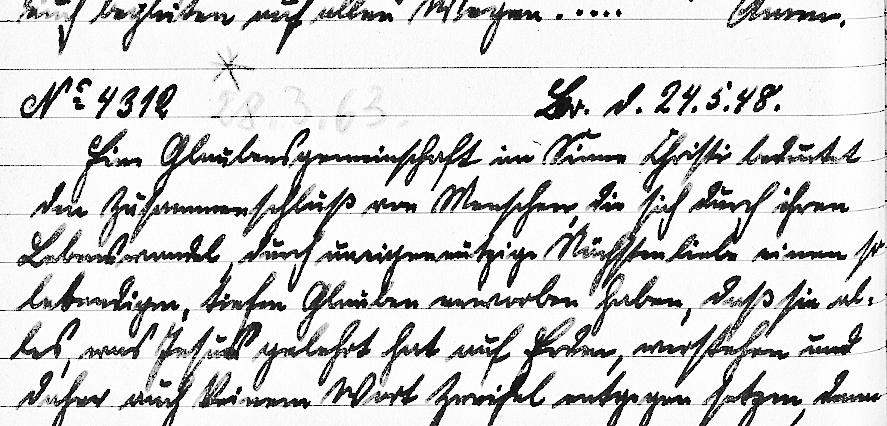 euch begleiten auf allen Wegen..... Amen.
No 4312 28.3.63. Br. d. 24.5.48.
Eine Glaubensgemeinschaft im Sinne Christi bedeutet
den Zusammenschluß von Menschen, die sich durch ihren
Lebenswandel, durch uneigennützige Nächstenliebe einen so
lebendigen, tiefen Glauben erworben haben, daß sie al-
les, was Jesus gelehrt hat auf Erden, verstehen und
daher auch keinem Wort Zweifel entgegen setzen, denn